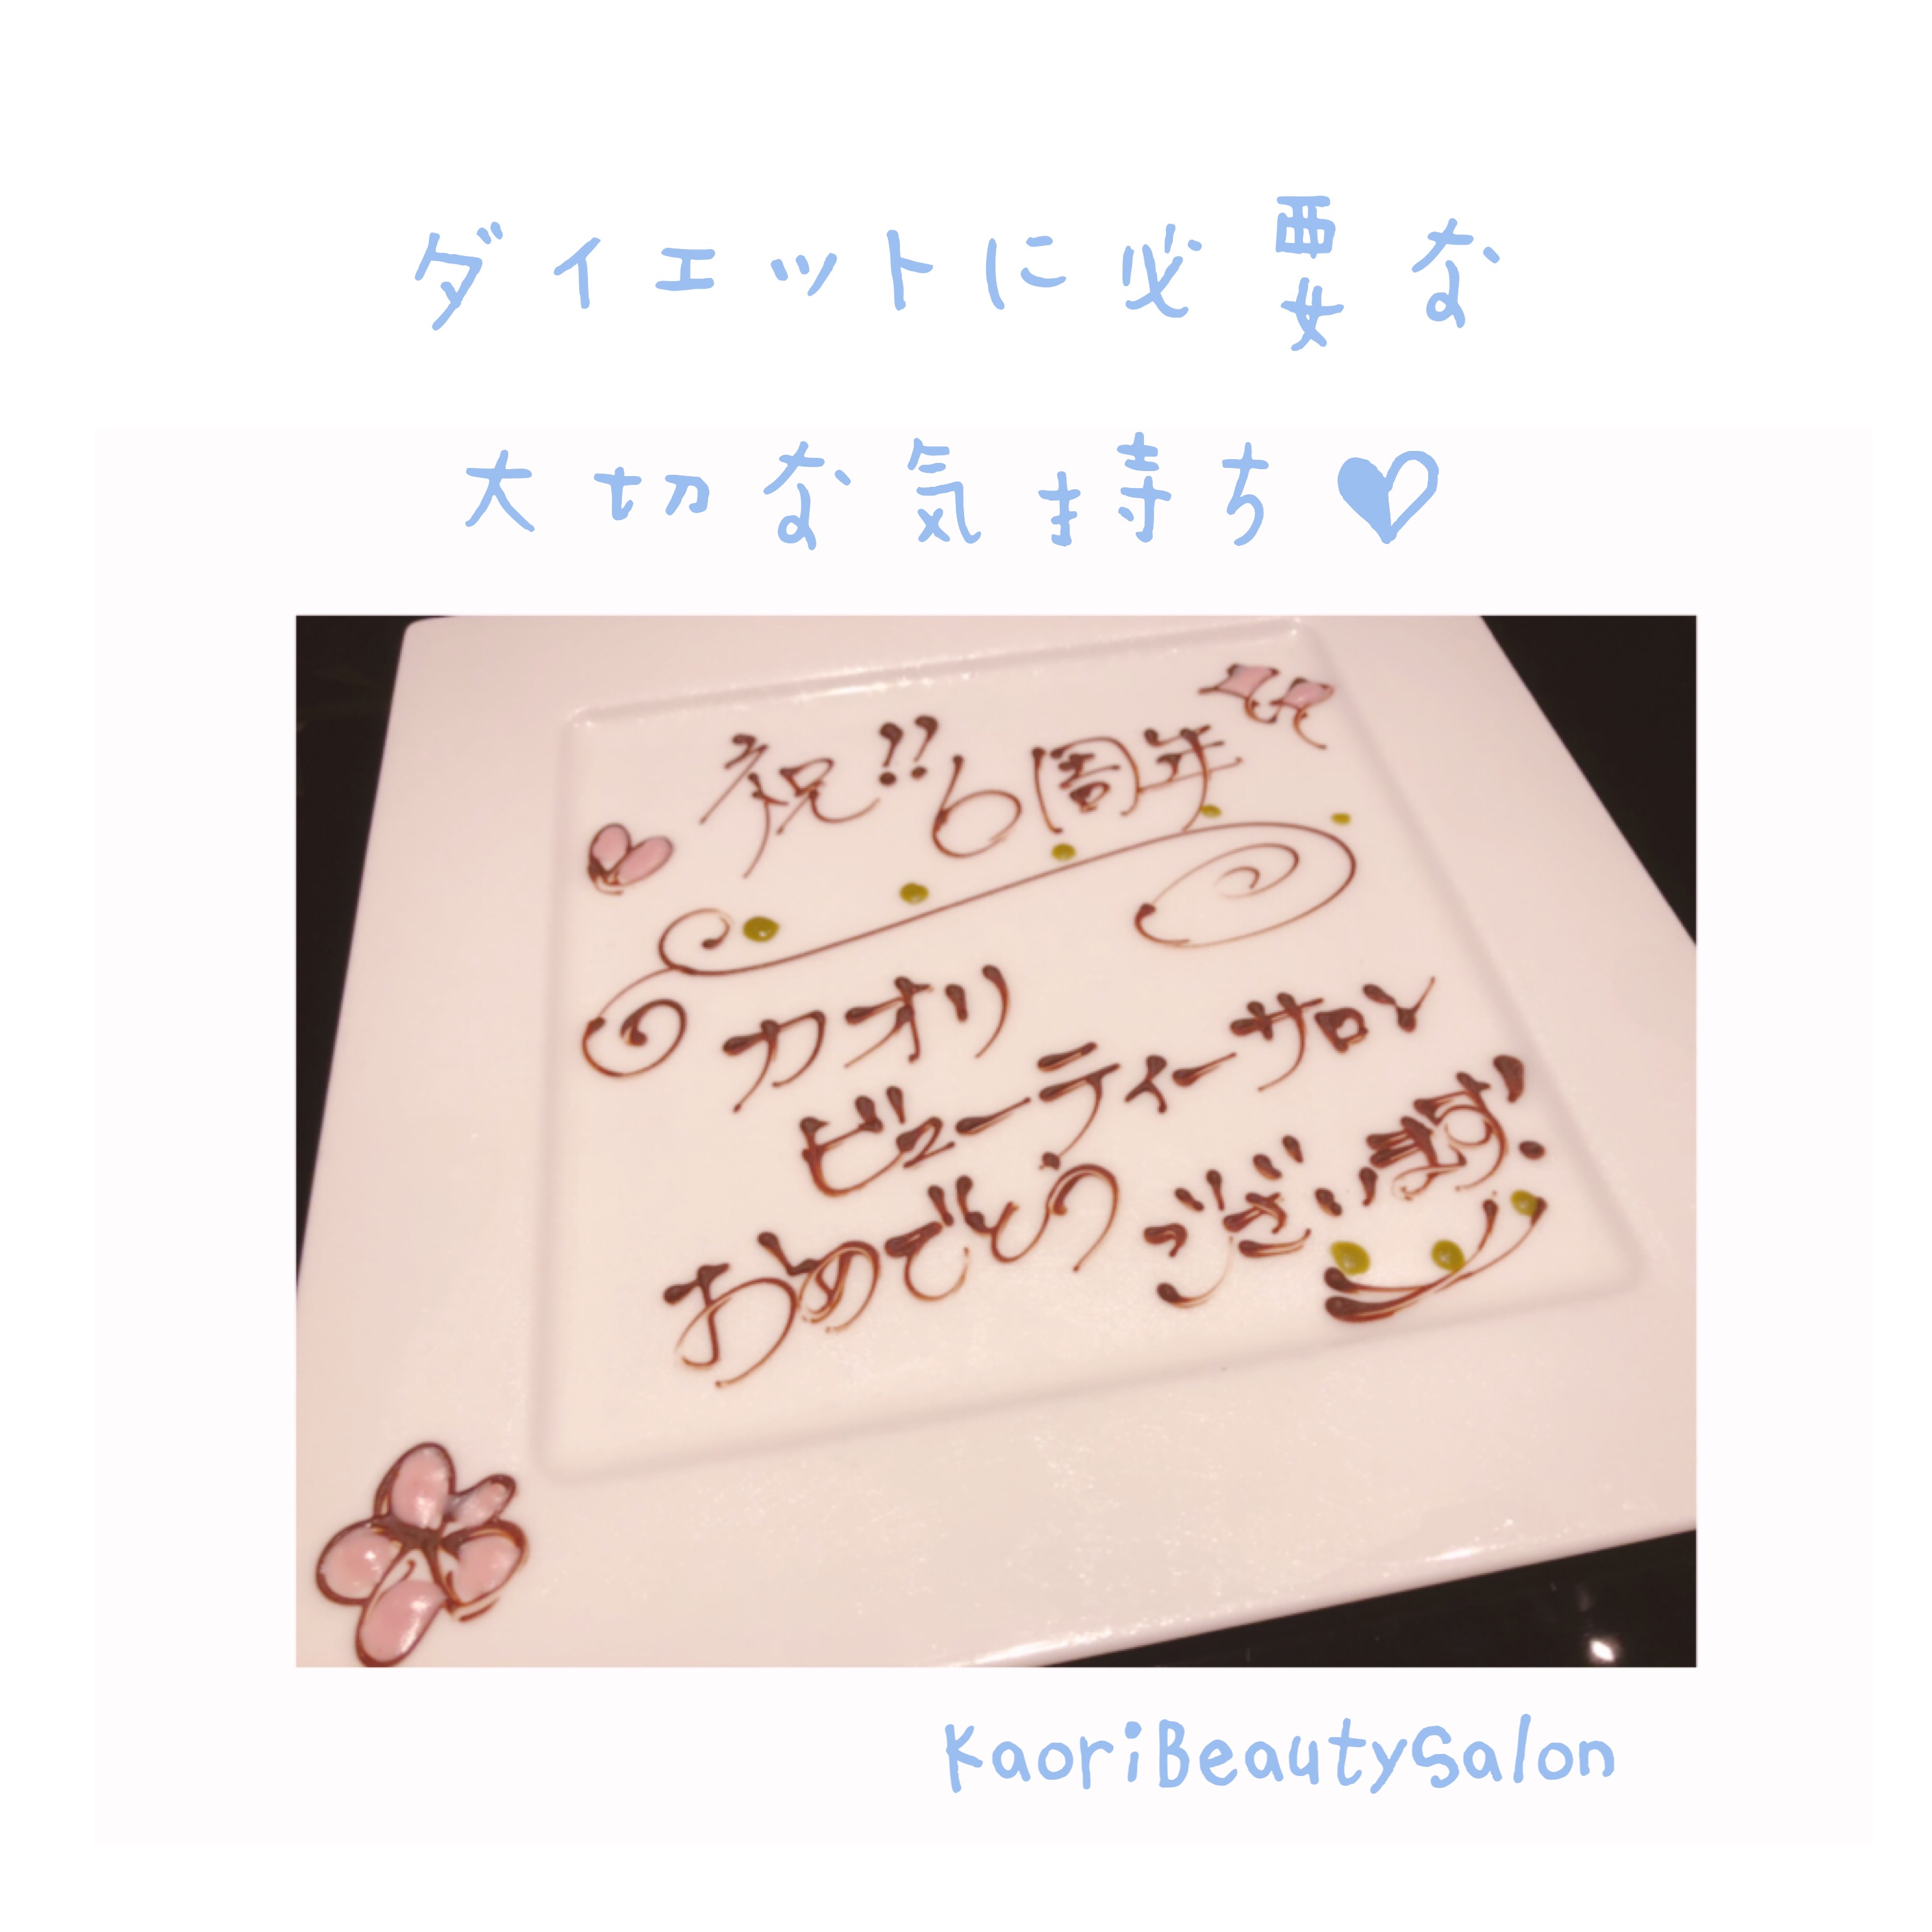 ダイエットに必要な
大切な気持ち♥
祝!!6周年
カオリ
ビューティーサロン
おめでとうございます!
KaoriBeautySalon